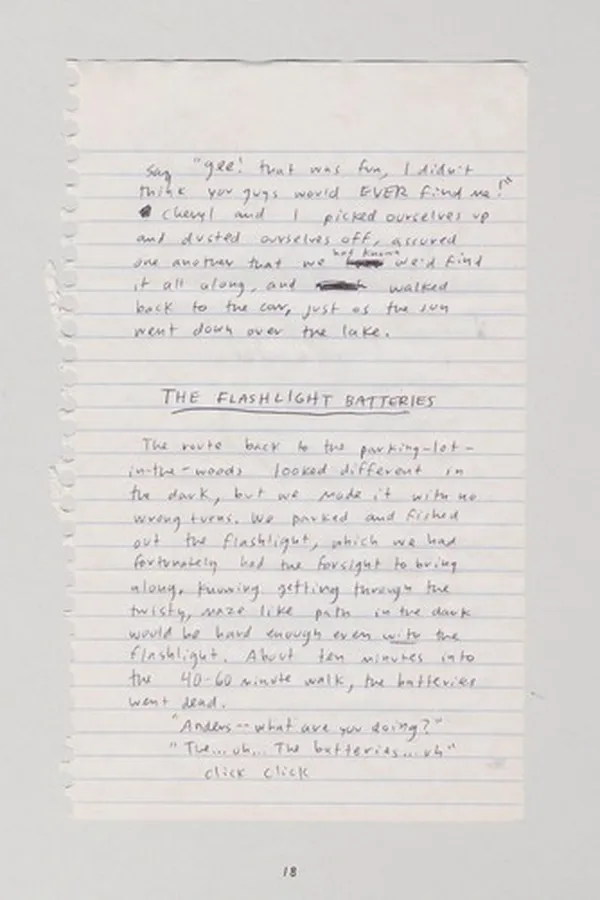 say "gee! that was fun, I didn't
think you guys would EVER find me!"
Cheryl and I picked ourselves up
and dusted ourselves off, assured
one another that we had known we'd find
it all along, and walked
back to the car, just as the sun
went down over the lake.
THE FLASHLIGHT BATTERIES
The route back to the parking-lot-
in-the-woods looked different in
the dark, but we made it with no
wrong turns. We parked and fished
out the flashlight, which we had
fortunately had the forsight to bring
along, knowing getting through the
twisty, maze like path in the dark
would be hard enough even with the
flashlight. About ten minutes into
the 40-60 minute walk, the batteries
went dead.
"Anders--what are you doing?"
"The...uh... The batteries...uh"
click click
18